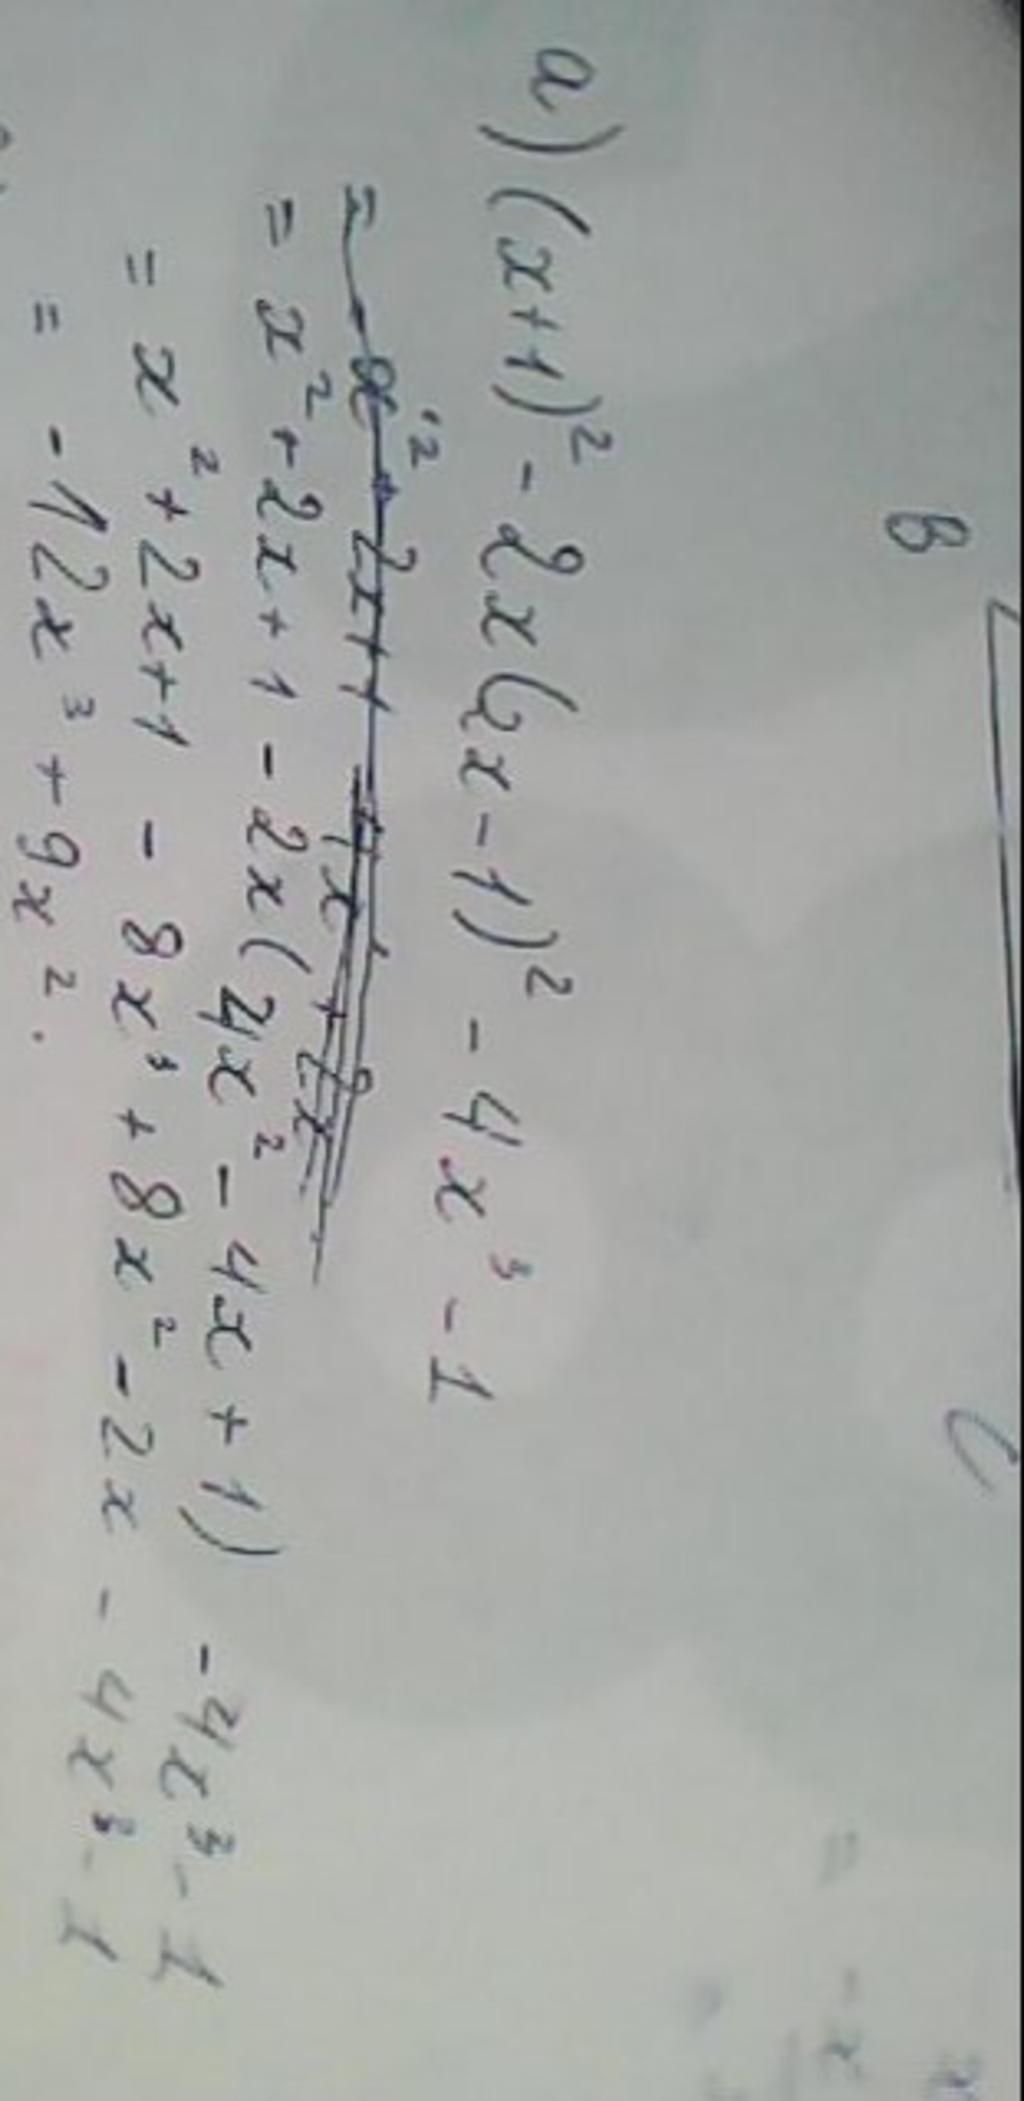 B
C
a) (x+1)² - 2x(2x-1)² - 4x³ - 1
= x² + 2x + 1 - 2x(4x² - 4x + 1) - 4x³ - 1
= x² + 2x+1 - 8x³ + 8x² - 2x - 4x³ - 1
= - 12x³ + 9x².